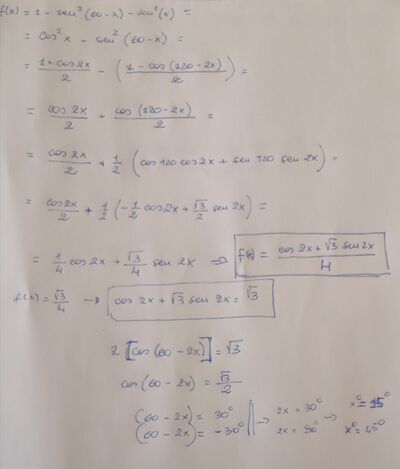 f(x) = 1 - sen²(60-x) - sen²(x) =
= cos²x - sen²(60-x) =
= (1+cos 2x)/2 - ((1-cos(120-2x))/2) =
= cos 2x/2 + cos(120-2x)/2 =
= cos 2x/2 + 1/2 (cos 120 cos 2x + sen 120 sen 2x) =
= cos 2x/2 + 1/2 (-1/2 cos 2x + √3/2 sen 2x) =
= 1/4 cos 2x + √3/4 sen 2x ⇒ f(x) = (cos 2x + √3 sen 2x)/4
f(x) = √3/4 → cos 2x + √3 sen 2x = √3
2 [cos(60-2x)] = √3
cos(60-2x) = √3/2
(60-2x) = 30° → 2x = 30° → x° = 15°
(60-2x) = -30° 2x = 90° x° = 45°